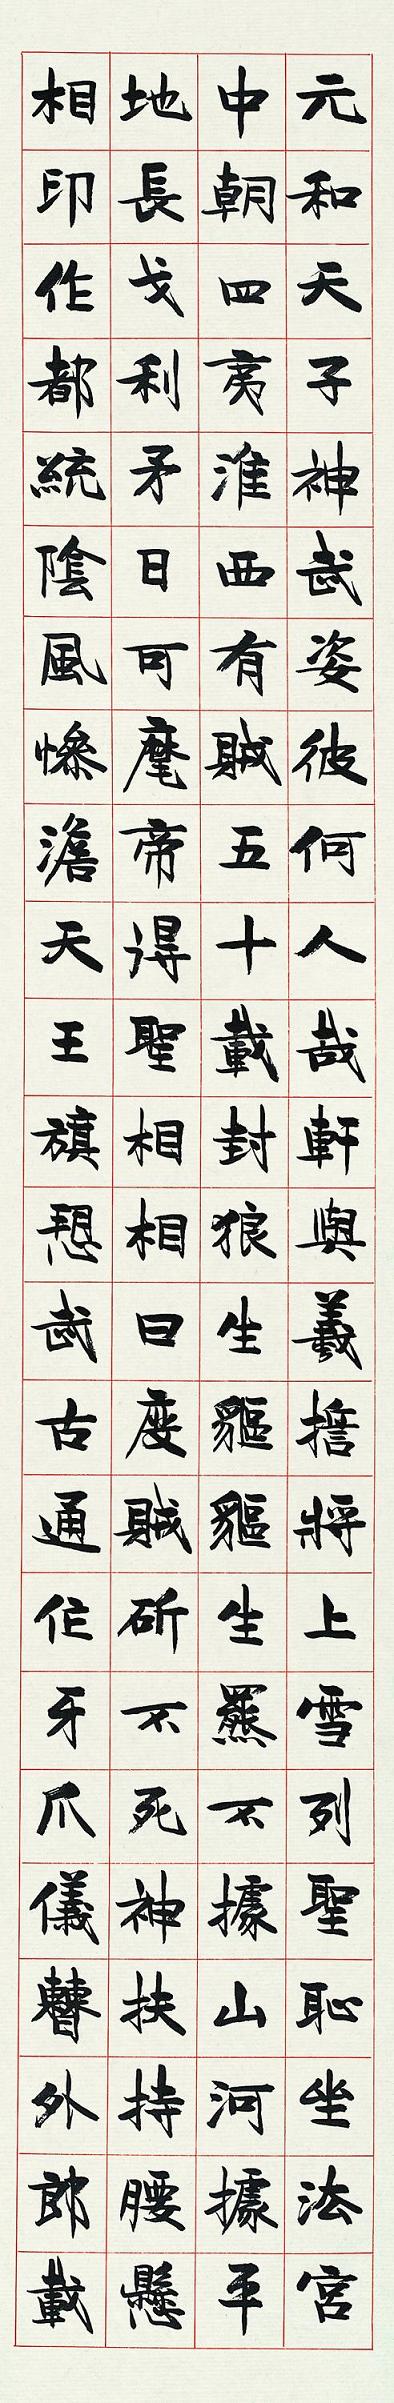 元和天子神武姿彼何人哉軒與羲擔將上雪列聖恥坐法宮
中朝四夷淮西有賊五十載封狼生貙貙生羆不據山河據平
地長戈利矛日可麾帝得聖相相曰度賊斫不死神扶持腰懸
相印作都統陰風慘澹天王旗愬武古通作牙爪儀曹外郎載